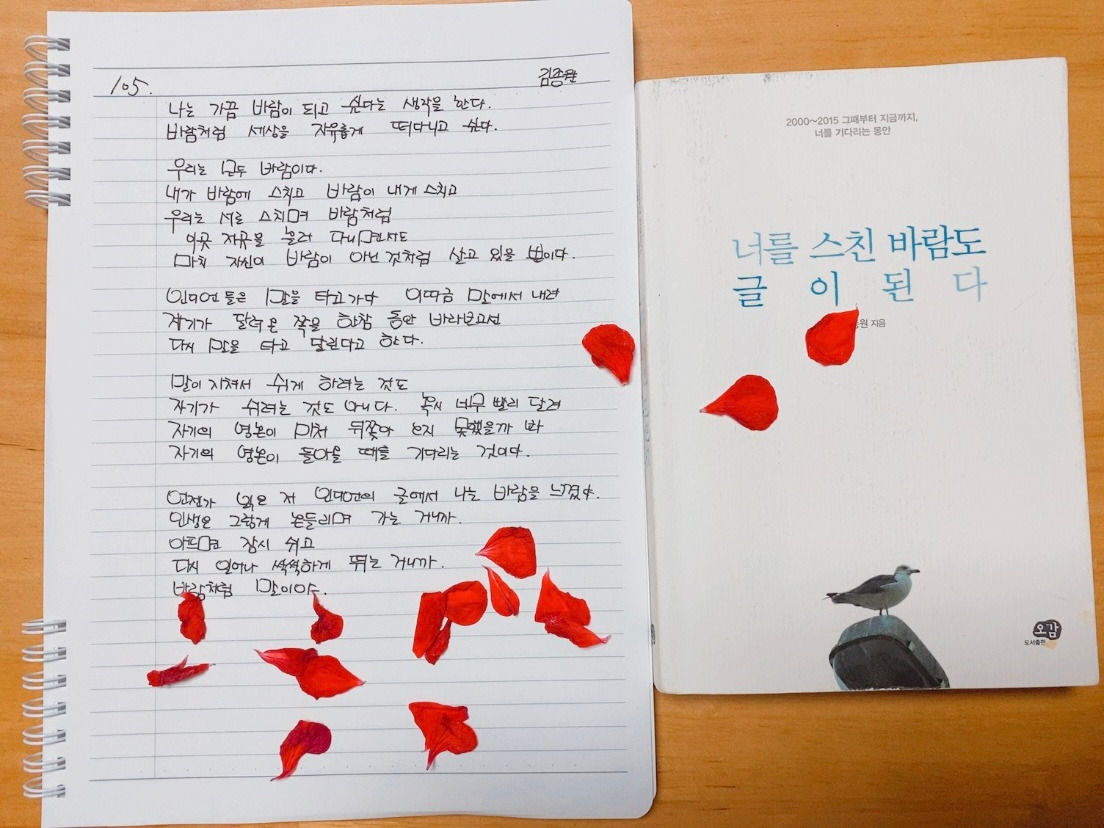 105.
김종원
나는 가끔 바람이 되고 싶다는 생각을 한다.
바람처럼 세상을 자유롭게 떠다니고 싶다.
우리는 모두 바람이다.
내가 바람에 스치고 바람이 내게 스치고
우리는 서로 스치며 바람처럼
이곳 저곳을 불려 다니면서도
마치 자신이 바람이 아닌 것처럼 살고 있을 뿐이다.
인디언들은 말을 타고 가다 이따금 말에서 내려
자기가 달려온 쪽을 한참 동안 바라보고선
다시 말을 타고 달린다고 한다.
말이 지쳐서 쉬게 하려는 것도
자기가 쉬려는 것도 아니다. 혹시 너무 빨리 달려
자기의 영혼이 미처 뒤쫓아 오지 못했을까 봐
자기의 영혼이 돌아올 때를 기다리는 것이다.
언젠가 읽은 저 인디언의 글에서 나는 바람을 느꼈다.
인생은 그렇게 흔들리며 가는 거니까.
아프면 잠시 쉬고
다시 일어나 씩씩하게 뛰는 거니까.
바람처럼 말이야.
2000~2015 그때부터 지금까지,
너를 기다리는 동안
너를 스친 바람도
글이 된다
원 지음
오감
도서출판